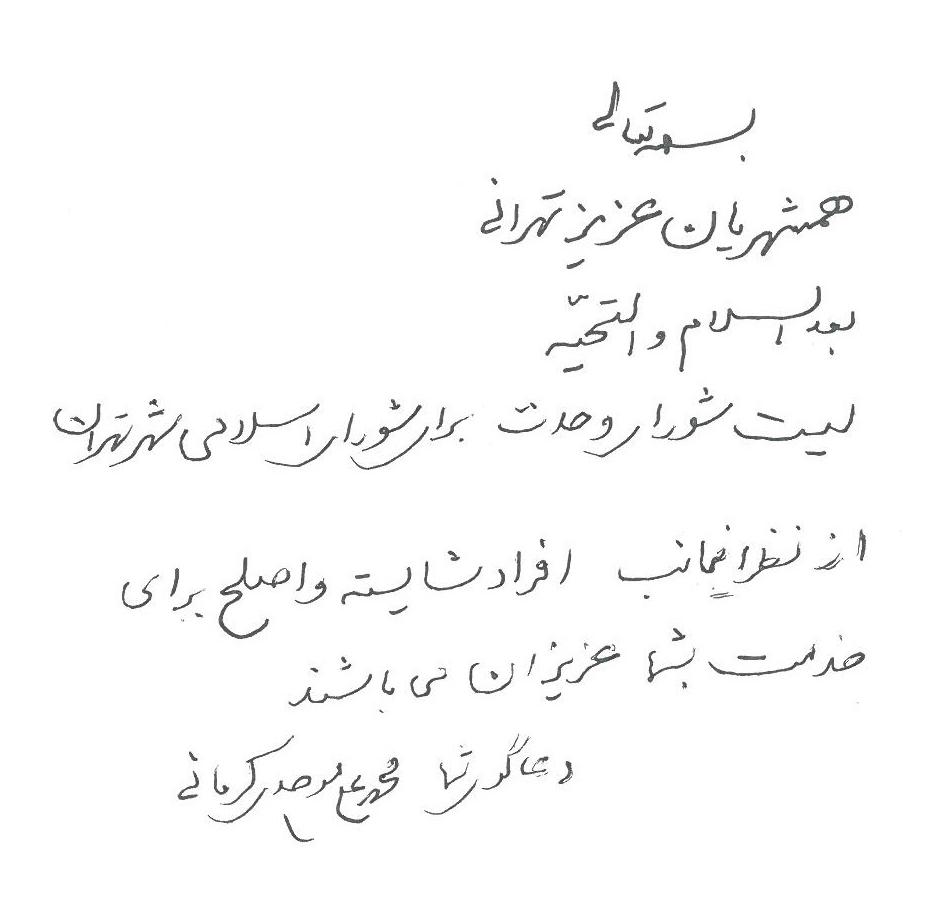 بسمه تعالی
همشهریان عزیز تهرانی
بعد السلام و التحیّه
لیست شورای وحدت برای شورای اسلامی شهر تهران
از نظر اینجانب افراد شایسته و اصلح برای
خدمت بشما عزیزان می باشند
دعاگوی شما محمد علی موحدی کرمانی